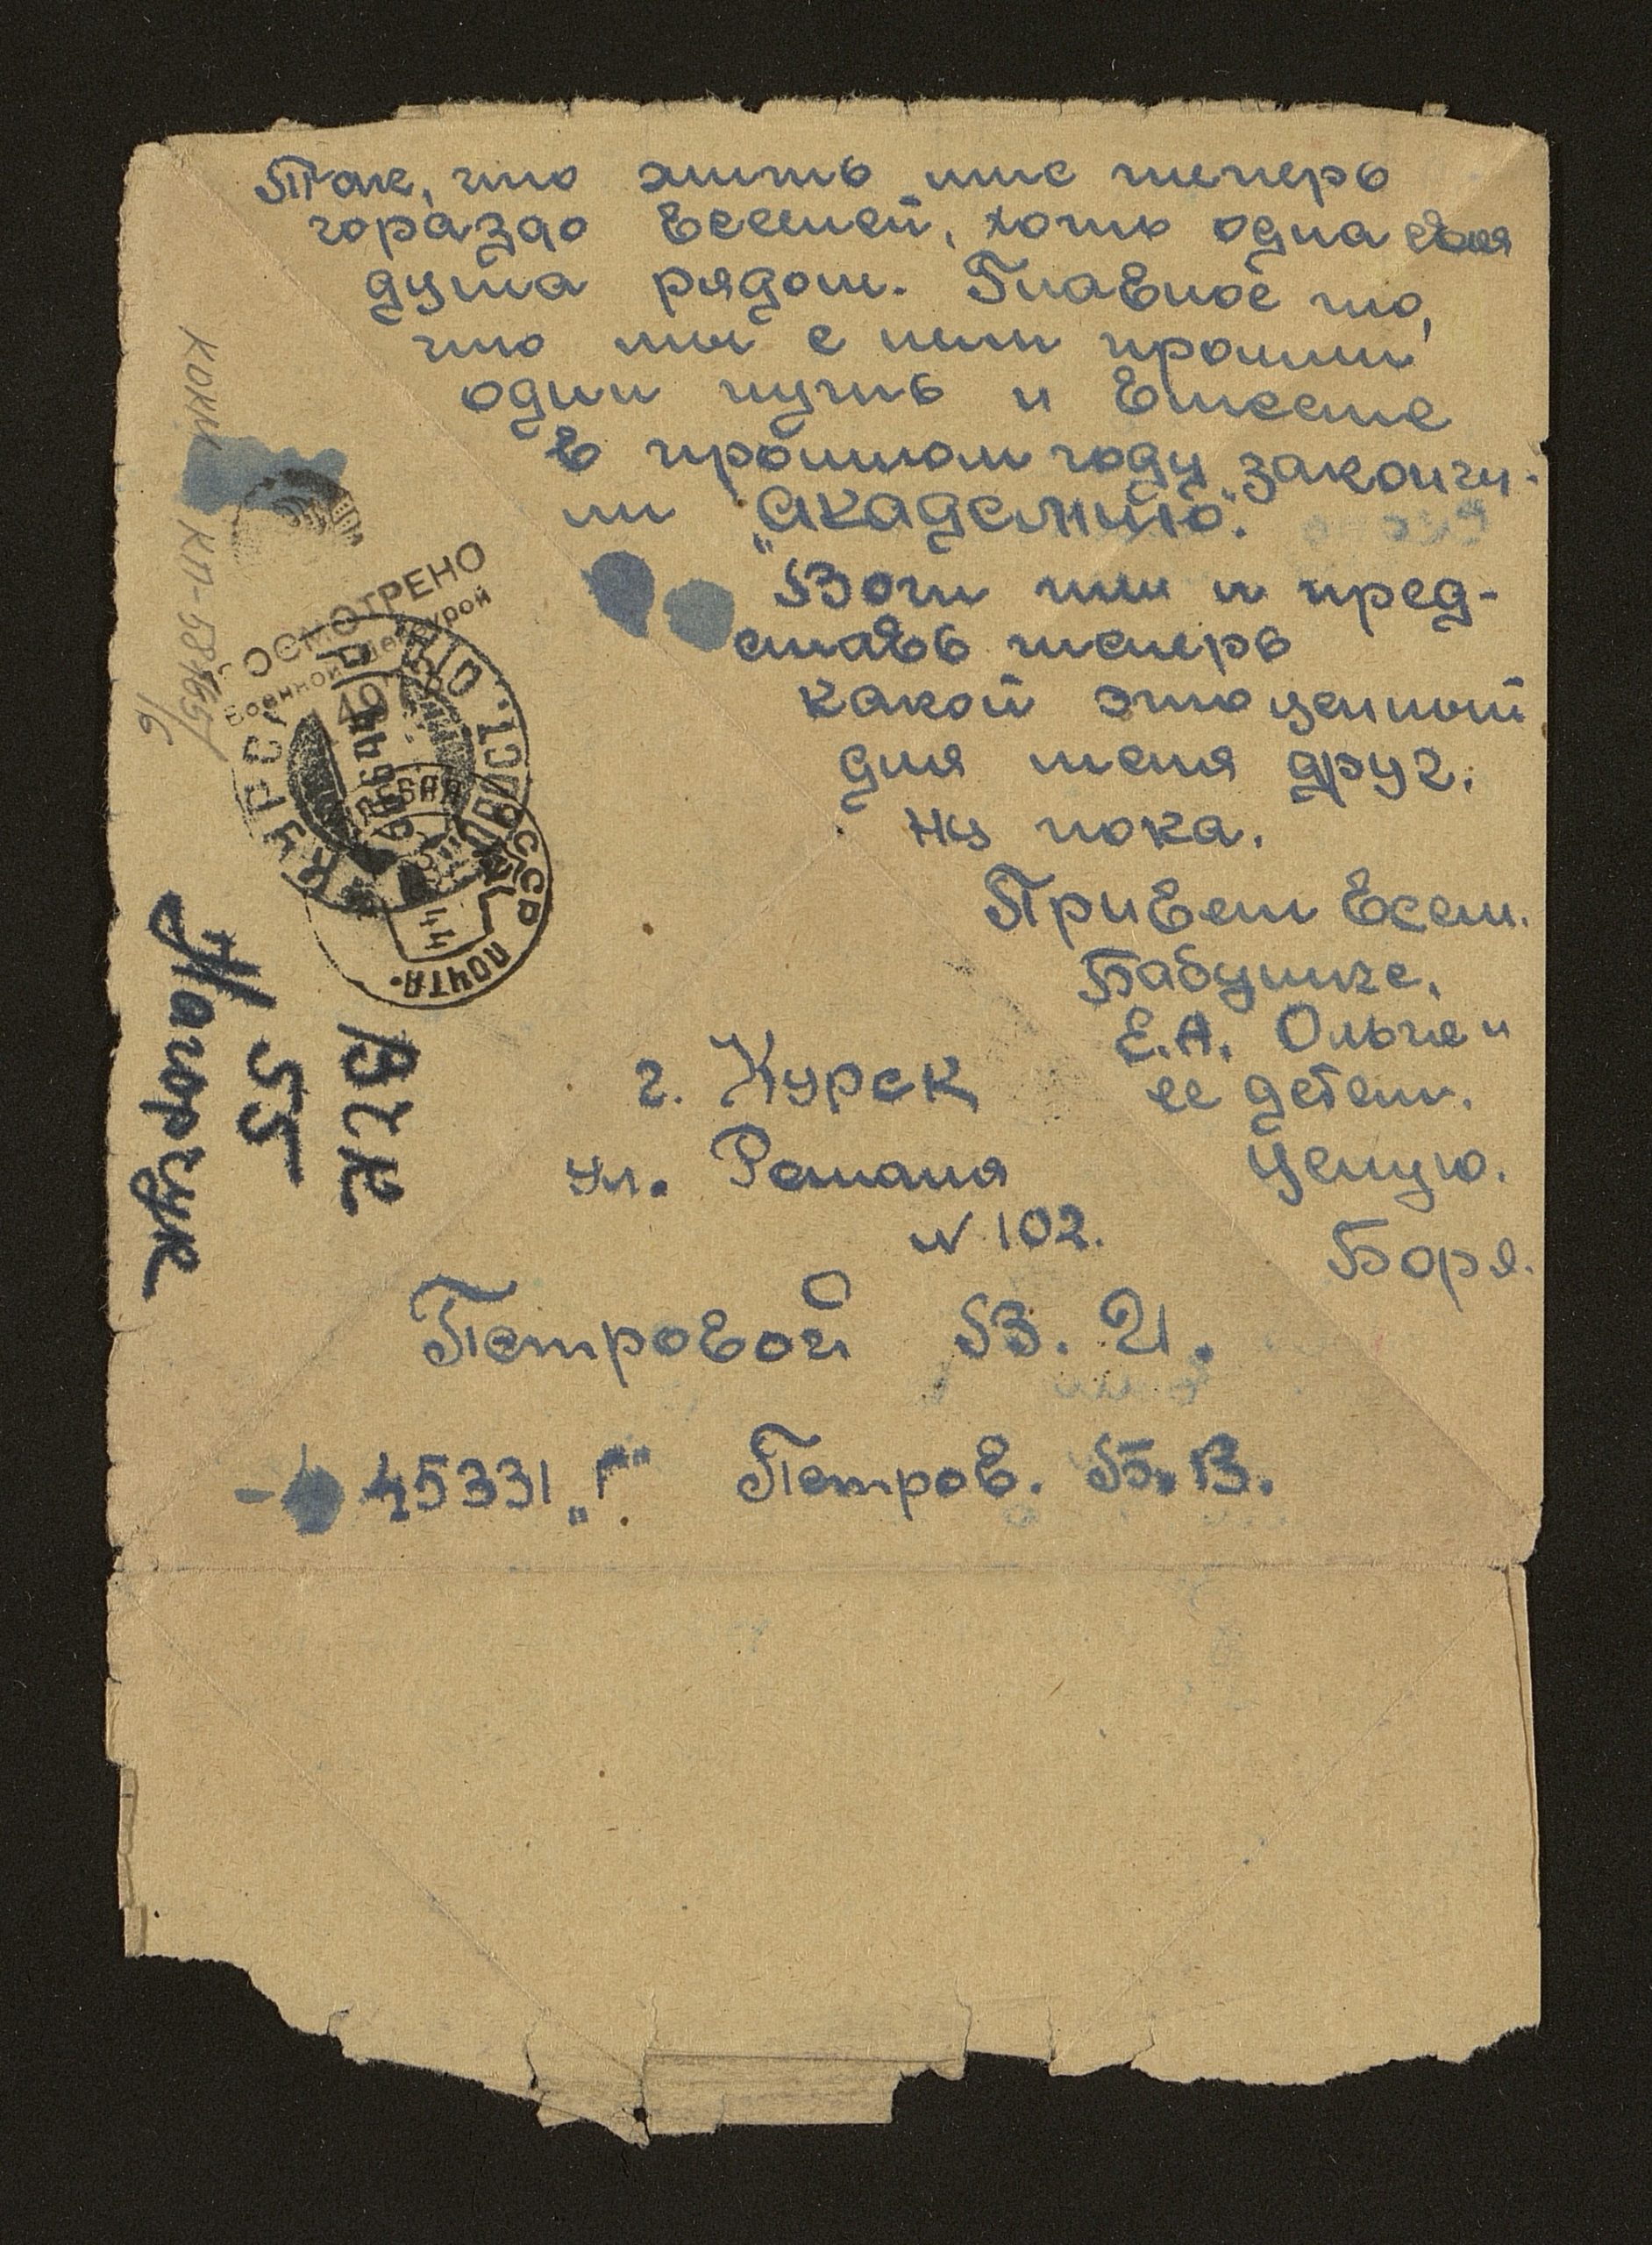 Так, что жить мне теперь
гораздо веселей, хоть одна своя
душа рядом. Главное то,
что мы с ним прошли
один путь и вместе
в прошлом году закончи-
ли "академию".
Вот ты и пред-
ставь теперь
какой это ценный
для меня друг.
Ну пока.
Привет всем.
Бабушке,
Е.А. Ольге и
ее детям.
Целую.
Боря.
г. Курск
ул. Ремання
№ 102.
Петровой В. И.
45331 „Г" Петров. Б. В.
ПРОСМОТРЕНО
Военной Цензурой
КУРСК
ПОЛЕВАЯ
СССР
ПОЧТА
44
КОКМ КП-58165/
16
55